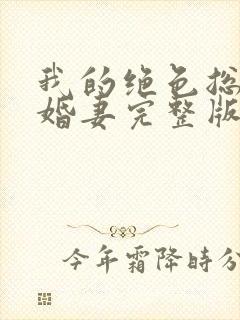 我的绝色总
婚妻完整版
今年霜降时分